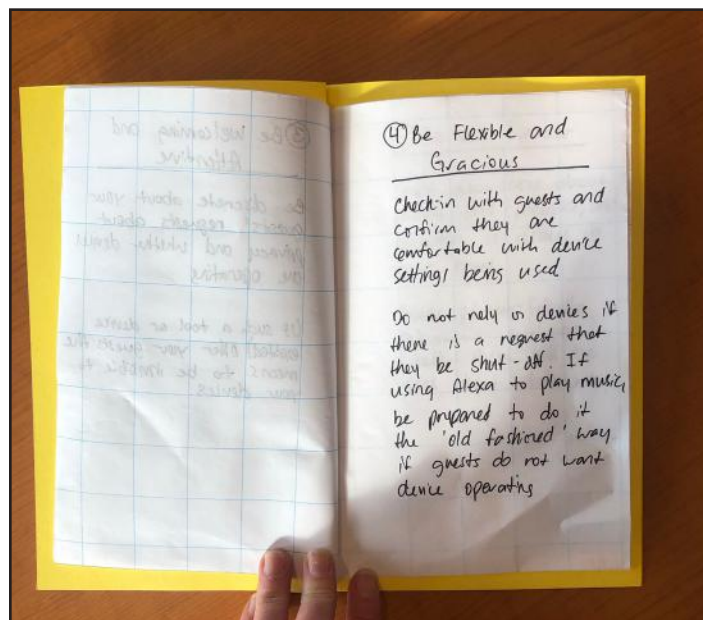 ④ Be Flexible and
Gracious
Check-in with guests and
confirm they are
comfortable with device
settings being used
Do not rely on devices if
there is a request that
they be shut-off. If
using Alexa to play music,
be prepared to do it
the 'old fashioned' way
if guests do not want
device operating